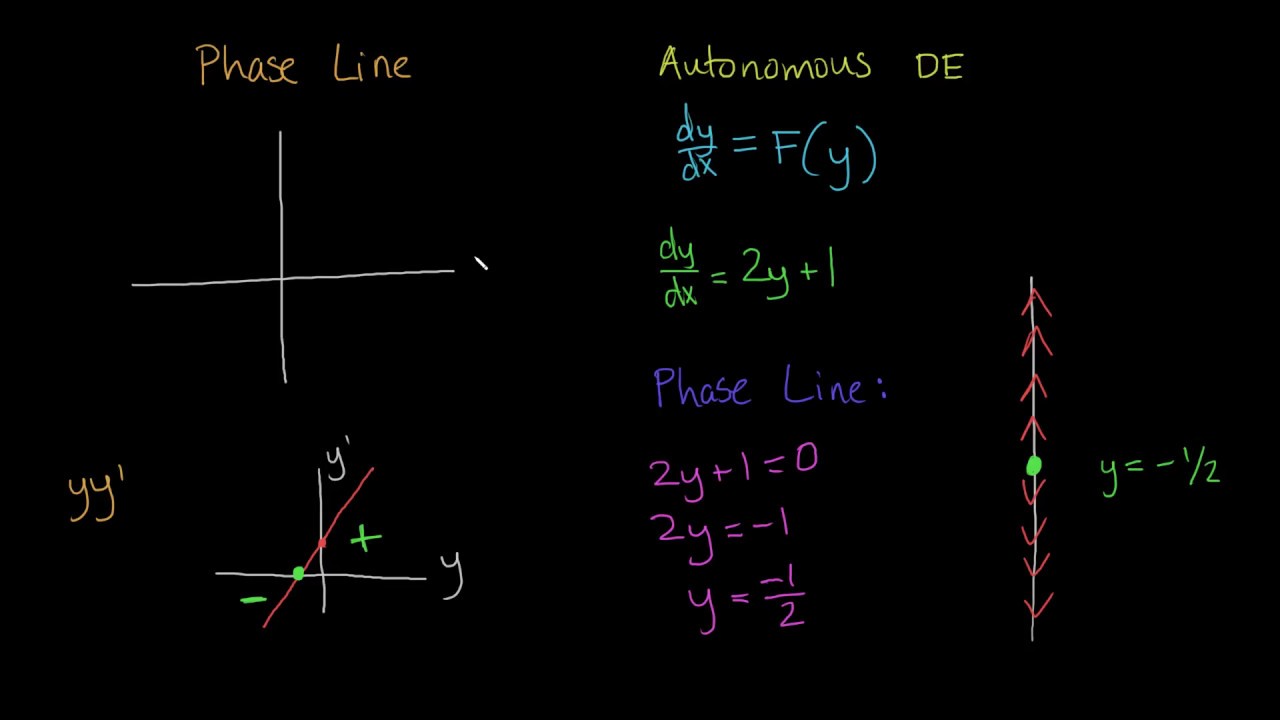 Phase Line
yy'
y'
+
y
-
Autonomous DE
dy/dx = F(y)
dy/dx = 2y+1
Phase Line:
2y+1=0
2y=-1
y = -1/2
y = -1/2